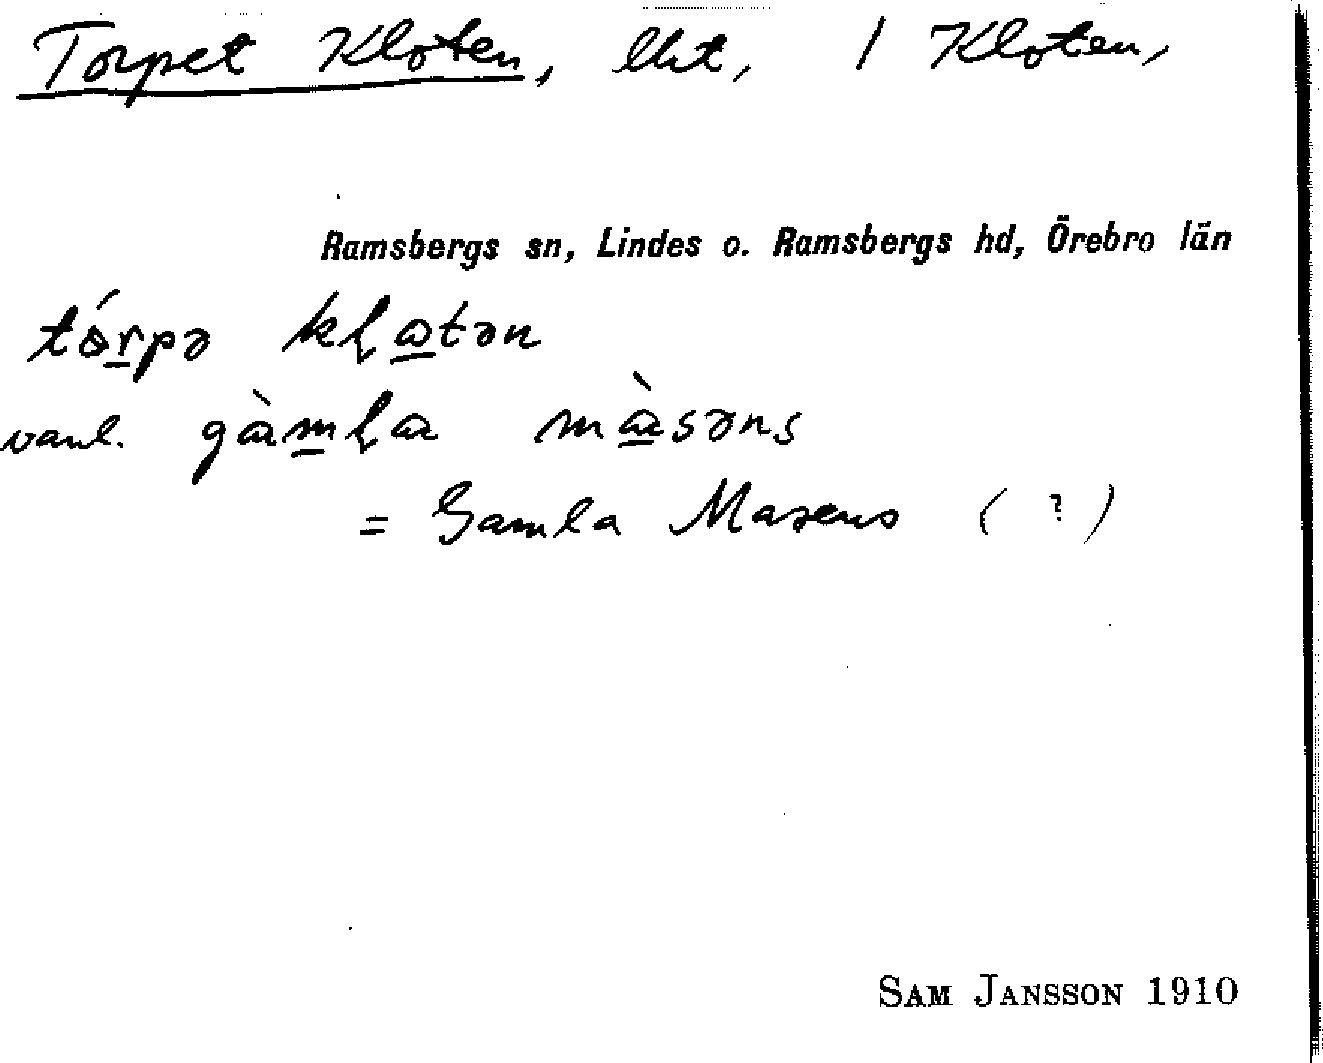 Torpet Kloten, lht, / Kloten,
Ramsbergs sn, Lindes o. Ramsbergs hd, Örebro län
tórpə kɫɷtən
vanl. gàmɫa màsəns
= Gamla Masens (?)
SAM JANSSON 1910